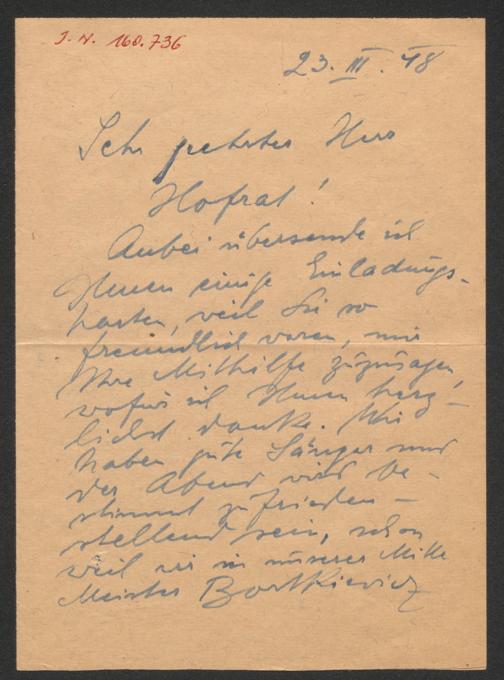 J. N. 160.736
23. III. 48
Sehr geehrter Herr
Hofrat!
Anbei übersende ich
Ihnen einige Einladungs-
karten, weil Sie so
freundlich waren, mir
Ihre Mithilfe zuzusagen,
wofür ich Ihnen herz-
lichst danke. Wir
haben gute Sänger und
der Abend wird be-
stimmt zufrieden-
stellend sein, schon
weil wir in unserer Mitte
Meister Bortkiewicz